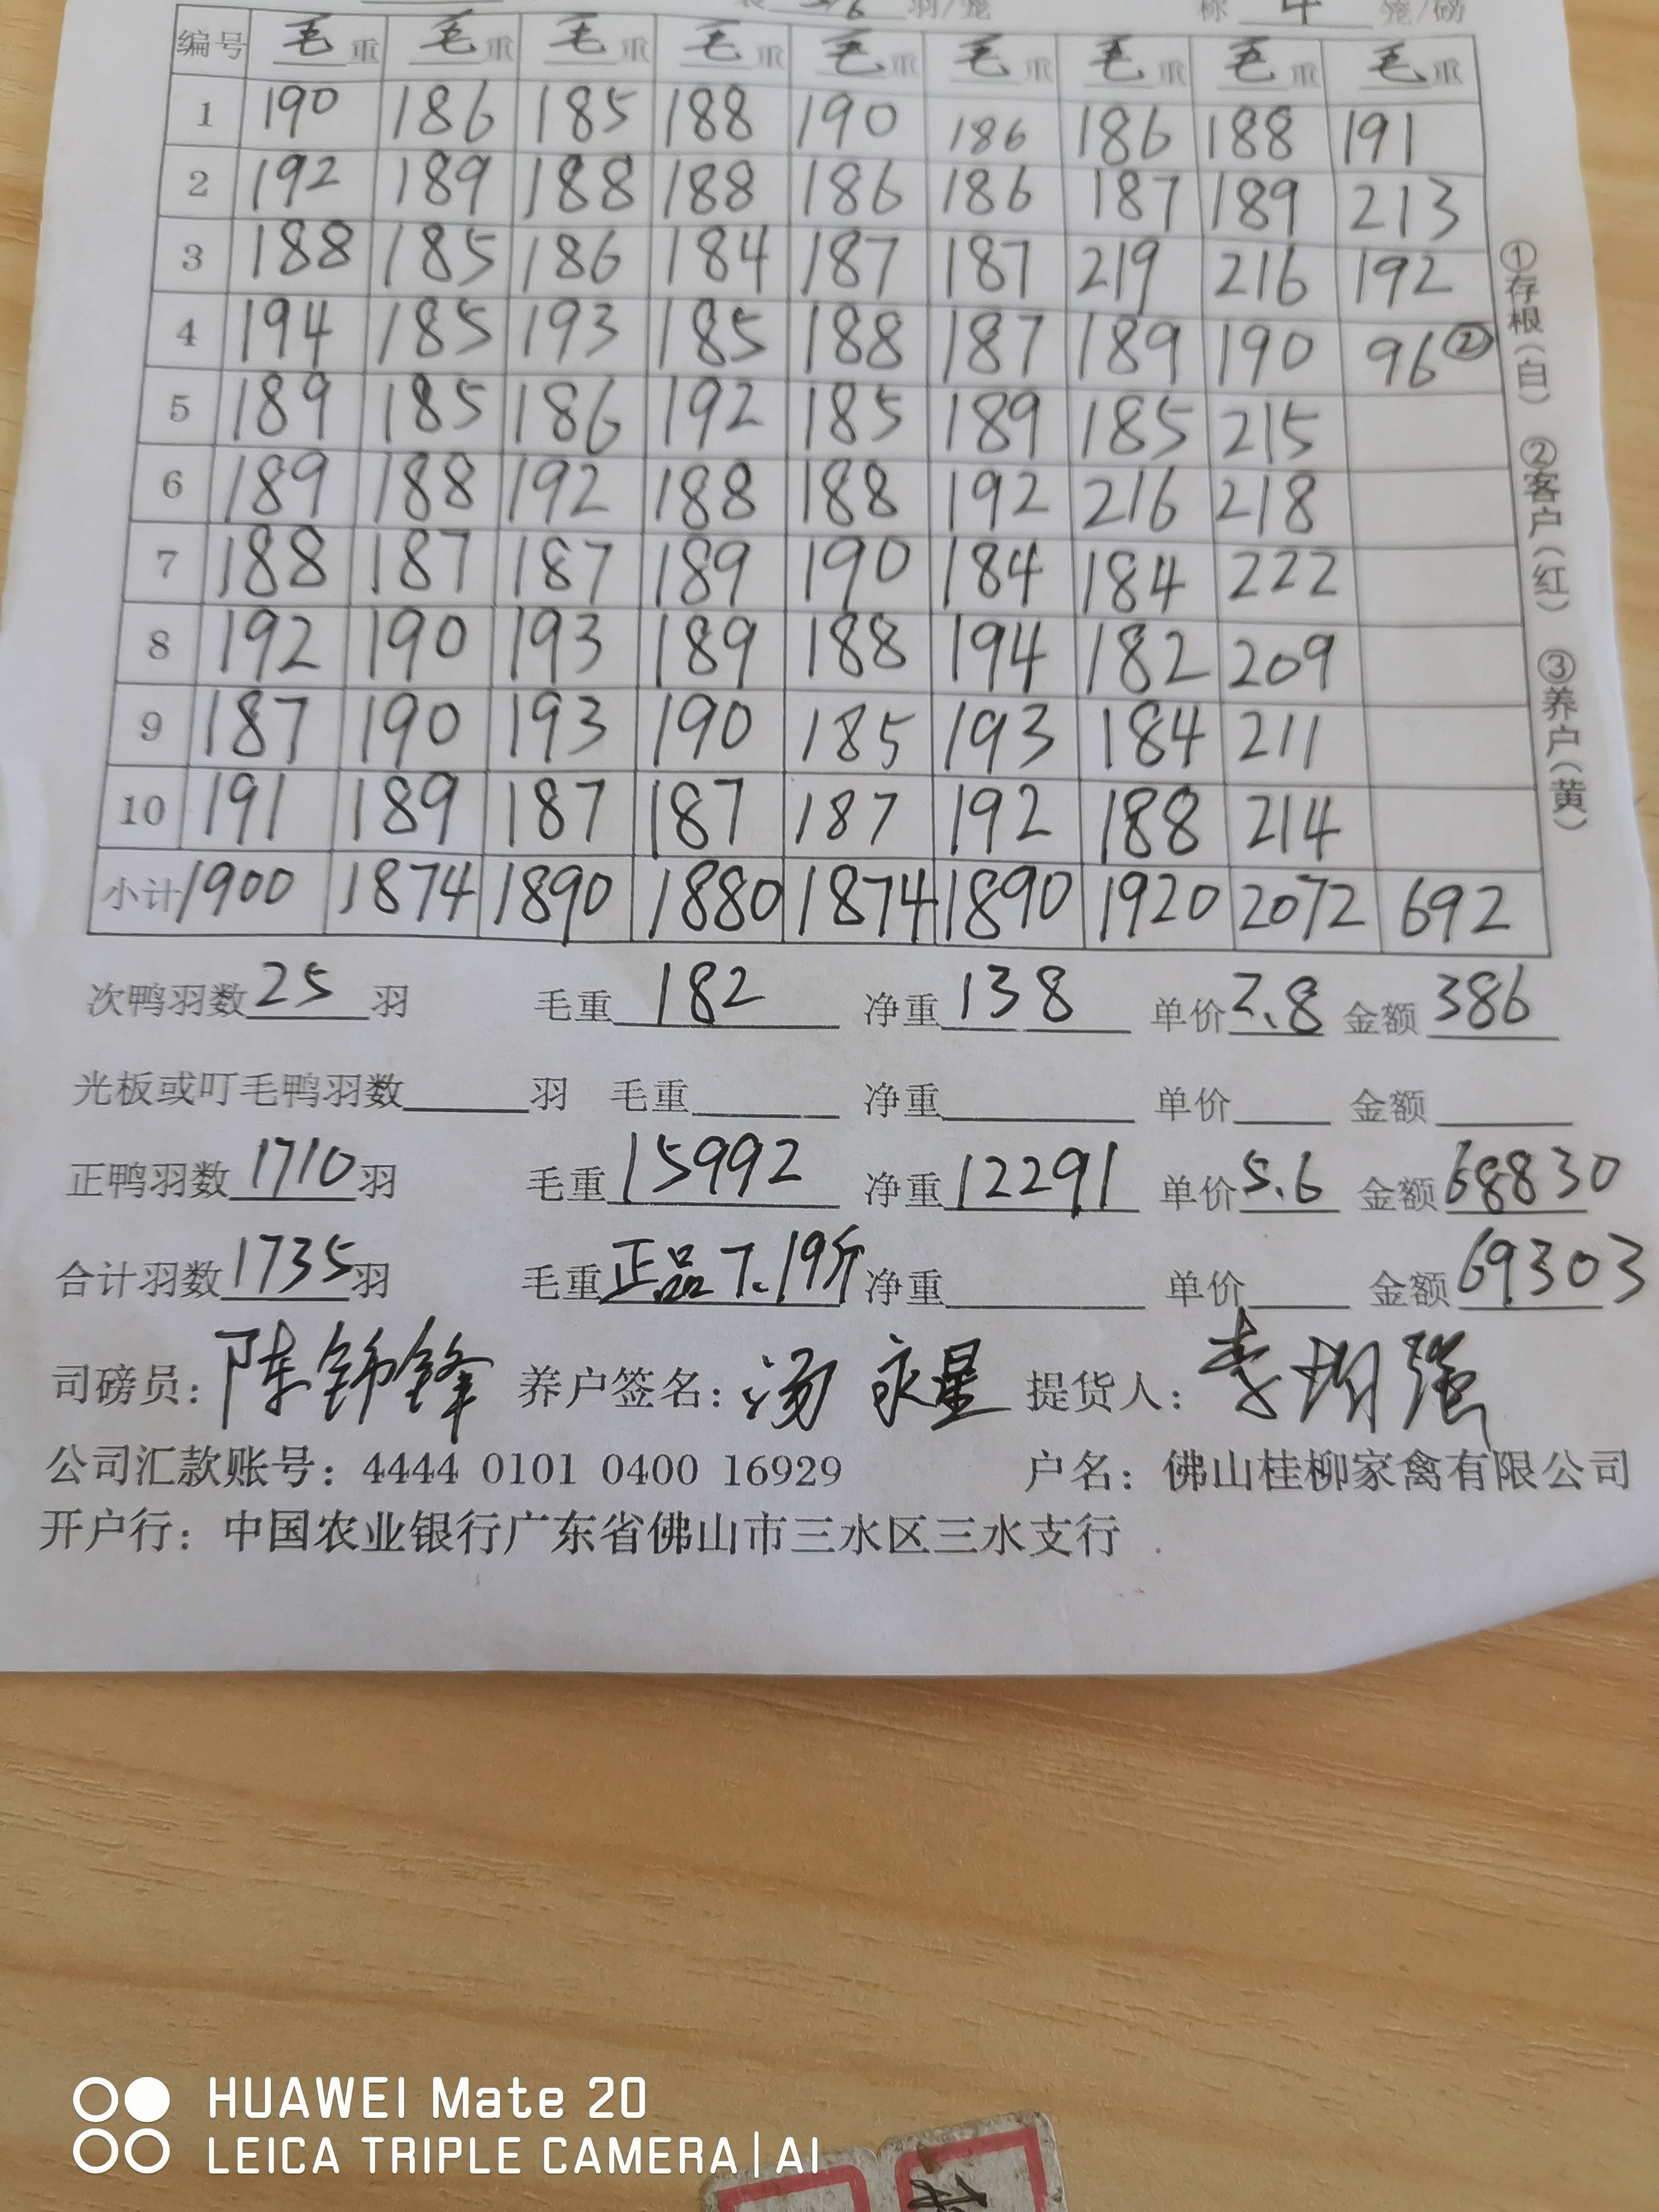 羽/笼 4 笼/磅
编号 毛重 毛重 毛重 毛重 毛重 毛重 毛重 毛重 毛重
1 190 186 185 188 190 186 186 188 191
2 192 189 188 188 186 186 187 189 213
3 188 185 186 184 187 187 219 216 192
4 194 185 193 185 188 187 189 190 96②
5 189 185 186 192 185 189 185 215
6 189 188 192 188 188 192 216 218
7 188 187 187 189 190 184 184 222
8 192 190 193 189 188 194 182 209
9 187 190 193 190 185 193 184 211
10 191 189 187 187 187 192 188 214
小计 1900 1874 1890 1880 1874 1890 1920 2072 692
①存根(白) ②客户(红) ③养户(黄)
次鸭羽数25羽 毛重182 净重138 单价2.8 金额386
光板或叮毛鸭羽数 羽 毛重 净重 单价 金额
正鸭羽数1710羽 毛重15992 净重12291 单价5.6 金额68830
合计羽数1735羽 毛重正品7.19斤 净重 单价 金额69303
司磅员：陈锦锋 养户签名：汤永星 提货人：李均强
公司汇款账号：4444 0101 0400 16929 户名：佛山桂柳家禽有限公司
开户行：中国农业银行广东省佛山市三水区三水支行
HUAWEI Mate 20
LEICA TRIPLE CAMERA | AI